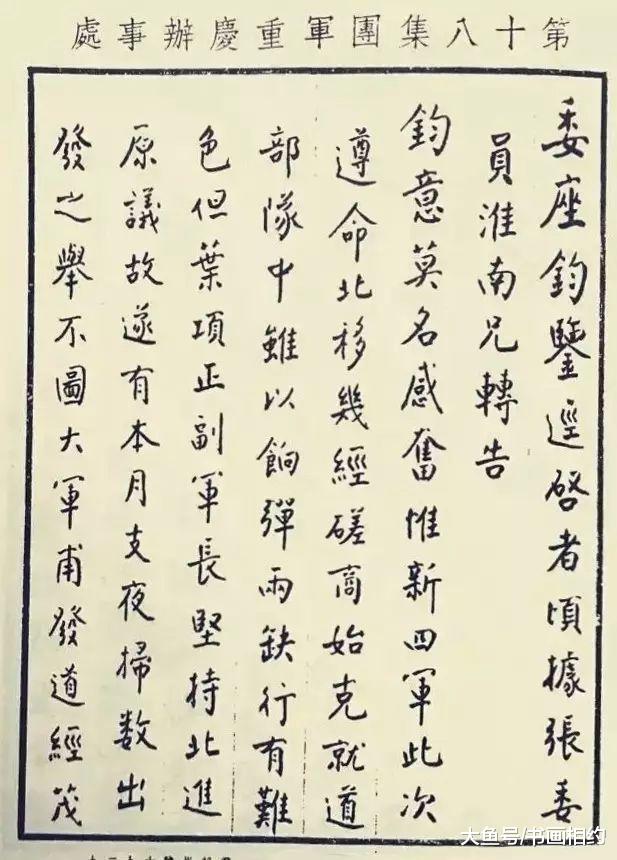 處事辦慶重軍團集八十第
委座鈞鑒逕啓者頃據張委
員淮南兄轉告
鈞意莫名感奮惟新四軍此次
遵命北移幾經磋商始克就道
部隊中雖以餉彈兩缺行有難
色但葉項正副軍長堅持北進
原議故遂有本月支夜掃数出
發之舉不圖大軍甫發道經茂
大鱼号/书画相约